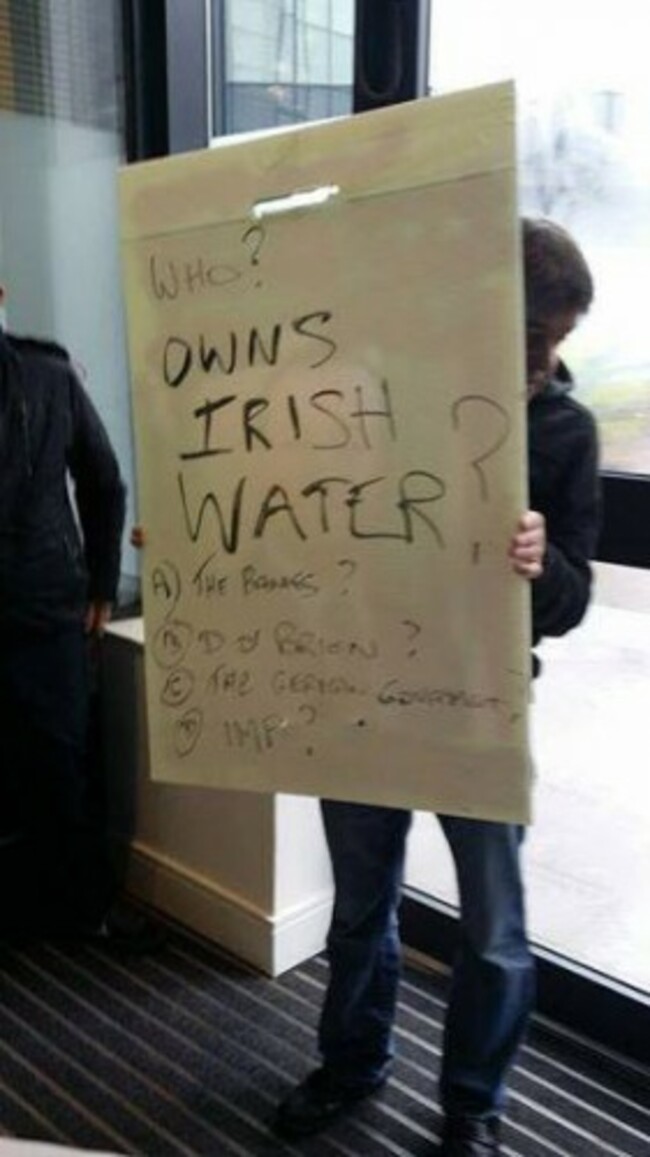 WHO?
OWNS
IRISH
WATER?
A) THE BANKS?
B D O'BRIEN?
C THE GERMAN GOVERNMENT?
D IMF?